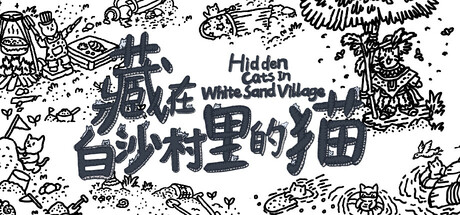 Hidden
Cats In
White Sand Village
藏在
白沙村里的猫